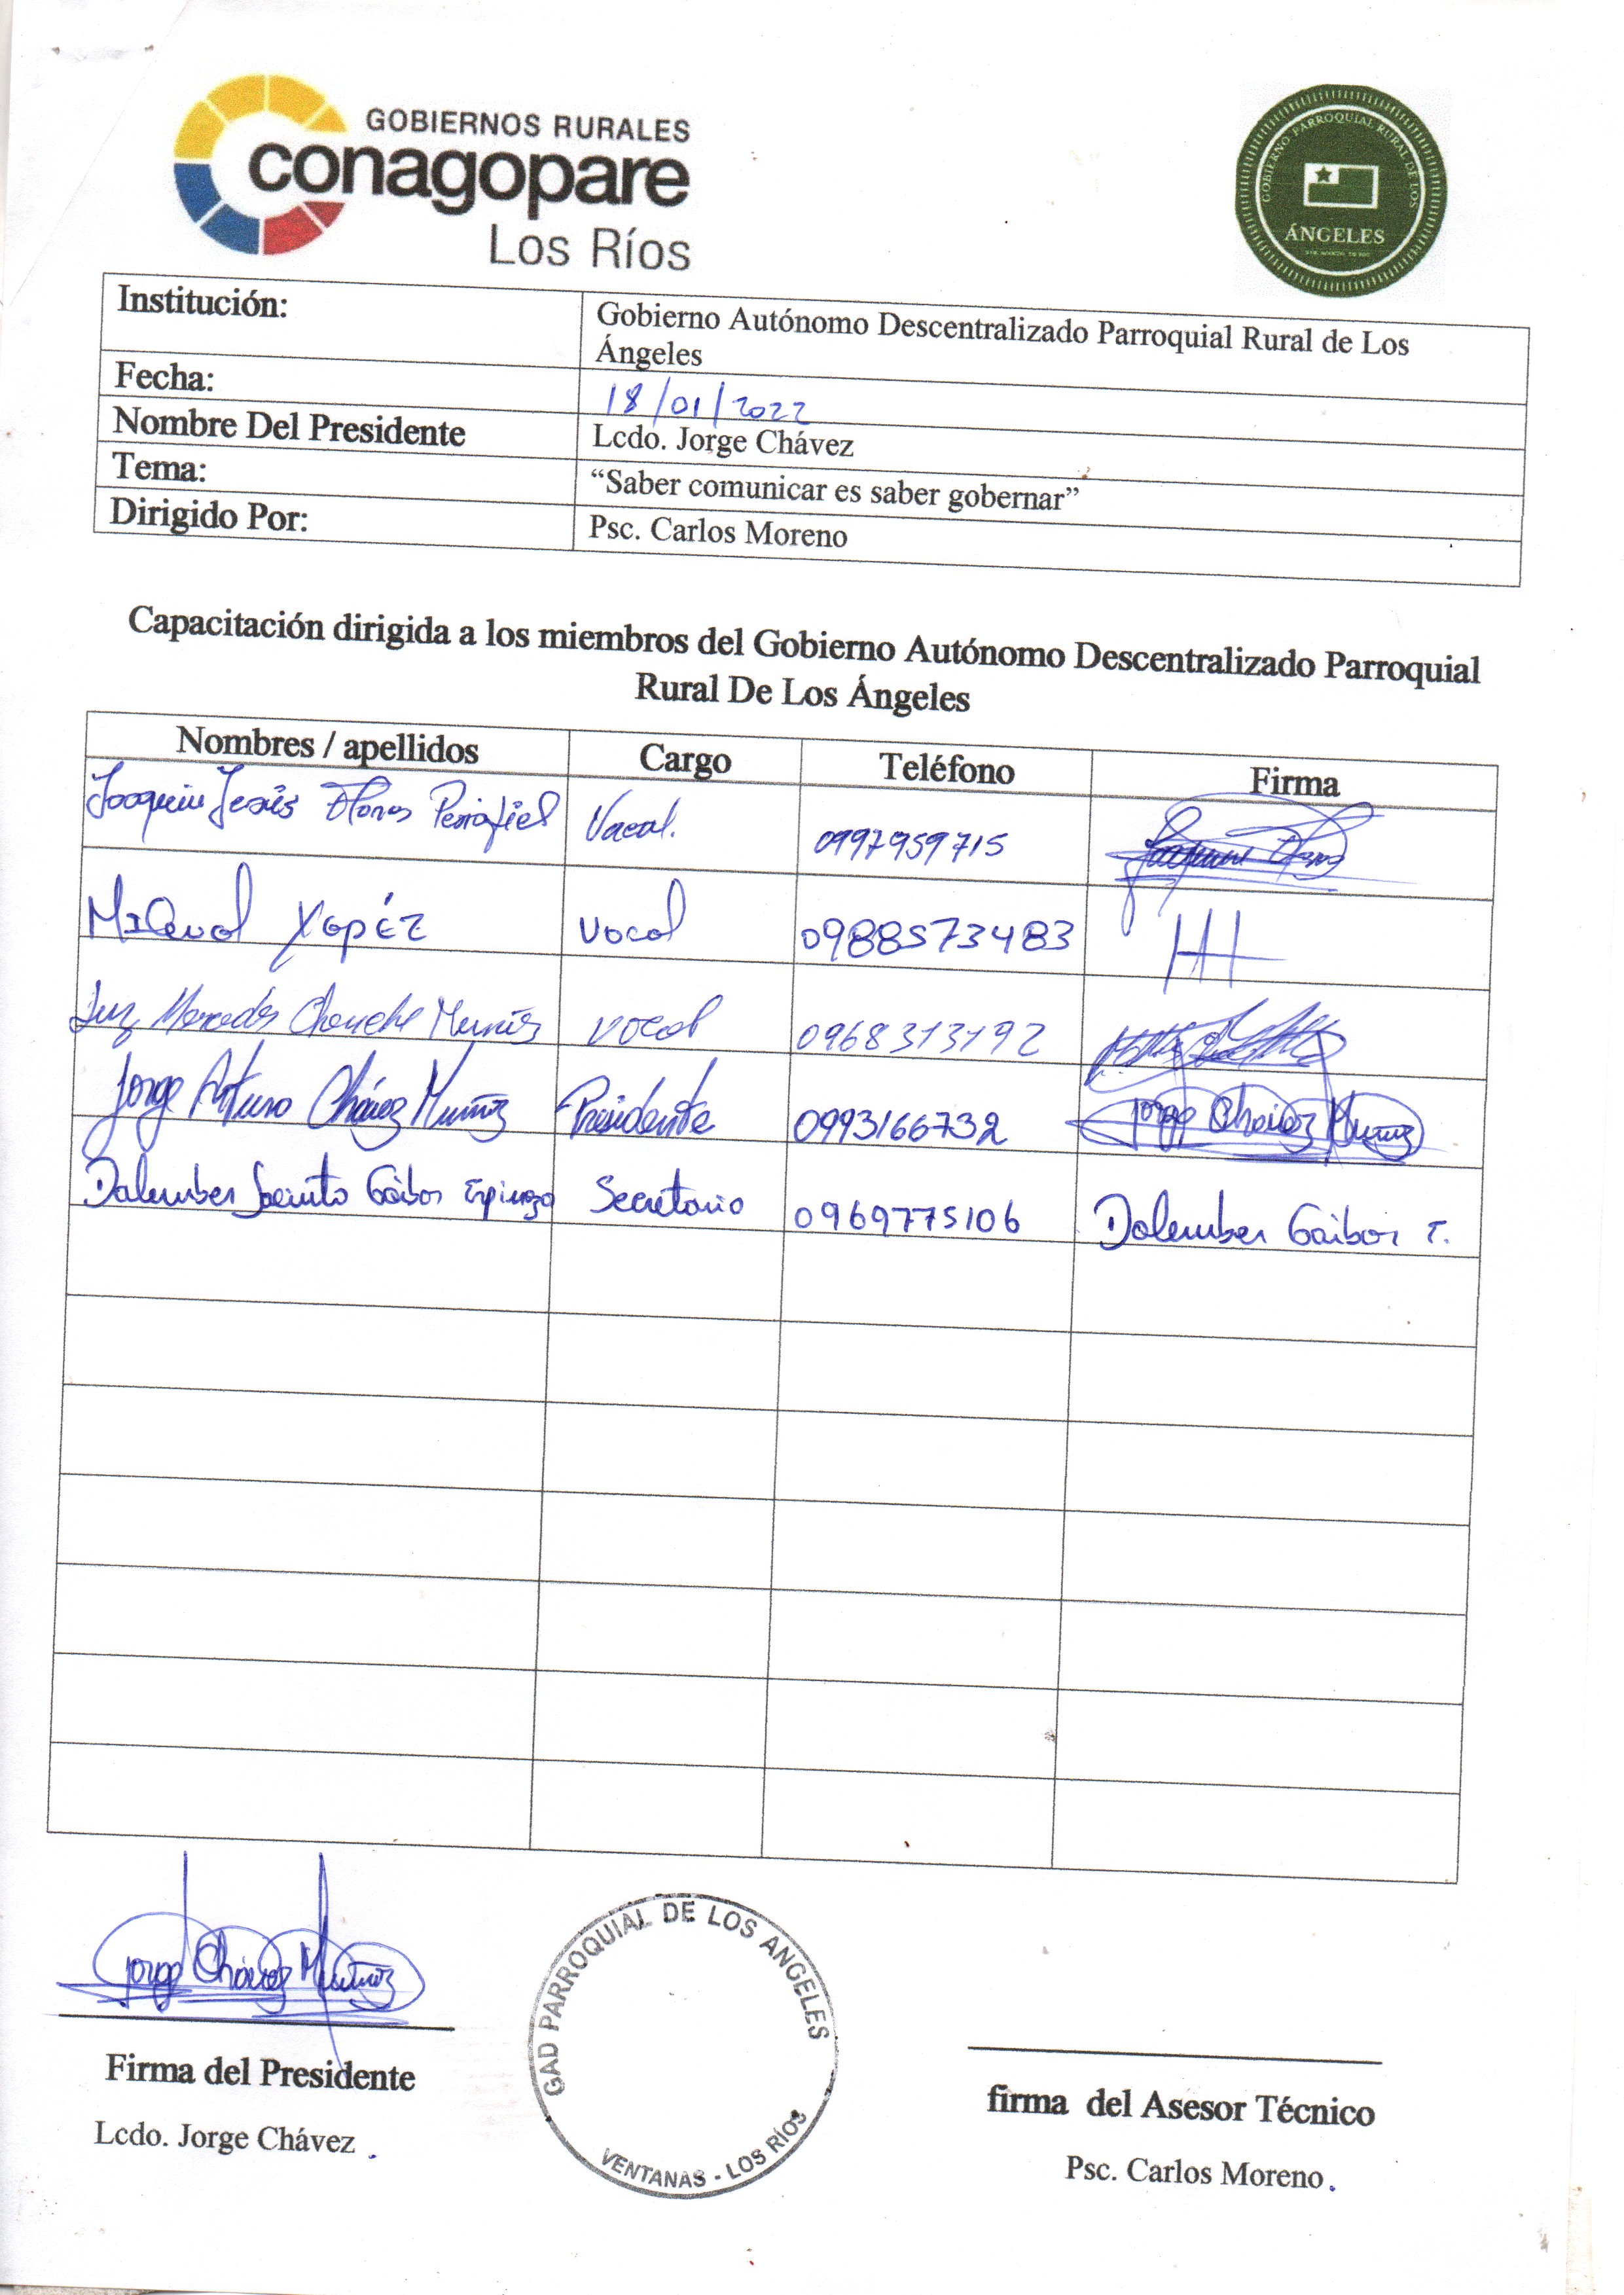 GOBIERNOS RURALES
conagopare
Los Ríos
GOBIERNO PARROQUIAL RURAL DE LOS
ÁNGELES
Institución: Gobierno Autónomo Descentralizado Parroquial Rural de Los
Ángeles
Fecha: 18/01/2022
Nombre Del Presidente Lcdo. Jorge Chávez
Tema: “Saber comunicar es saber gobernar”
Dirigido Por: Psc. Carlos Moreno
Capacitación dirigida a los miembros del Gobierno Autónomo Descentralizado Parroquial
Rural De Los Ángeles
Nombres / apellidos Cargo Teléfono Firma
Joaquin Jesús Flores Peñafiel Vocal. 0997959715 Joaquin Flores
MIGuel YepÉz Vocal 0988573483
Luz Mercedes Muñiz Vocal
Jorge Arturo Chávez Muñoz Presidente 0993166732 Jorge Chávez Muñoz
Dalember Jacinto Gaibor Espinoza Secretario 0969775106 Dalember Gaibor
Jorge Chávez Muñoz
Firma del Presidente
Lcdo. Jorge Chávez .
GAD PARROQUIAL DE LOS ANGELES
VENTANAS - LOS RÍOS
firma del Asesor Técnico
Psc. Carlos Moreno.